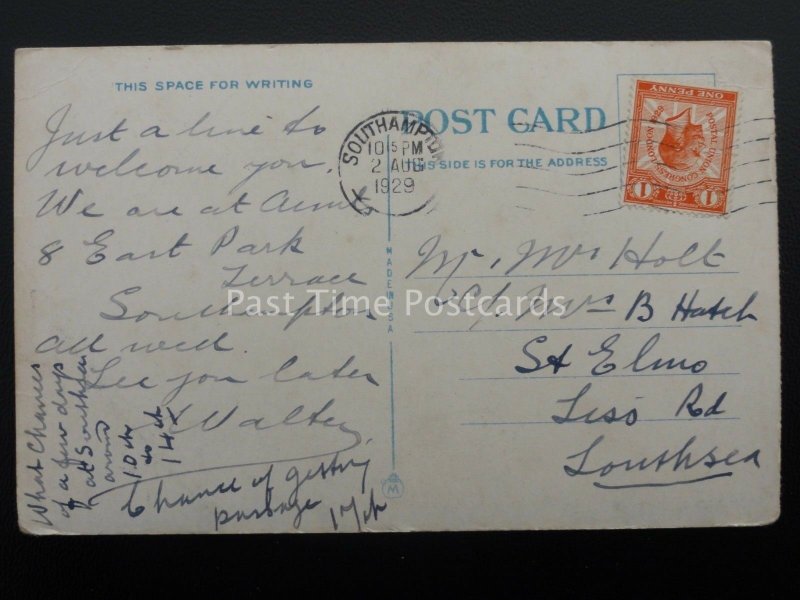 THIS SPACE FOR WRITING
Just a line to
welcome you.
We are at Aunts
8 East Park
Terrace
Southampton
all well.
See you later
Walter
What Chances
of a few days
at Southsea
around
10th
to
14th
Chance of getting
passage 17th
MADE IN U.S.A
POST CARD
THIS SIDE IS FOR THE ADDRESS
SOUTHAMPTON
10 5 PM
2 AUG
1929
POSTAL UNION CONGRESS LONDON 1929
1 1
ONE PENNY
Mr. Mrs Holt
c/o Mrs B Hatch
St Elmo
Liss Rd
Southsea
Past Time Postcards